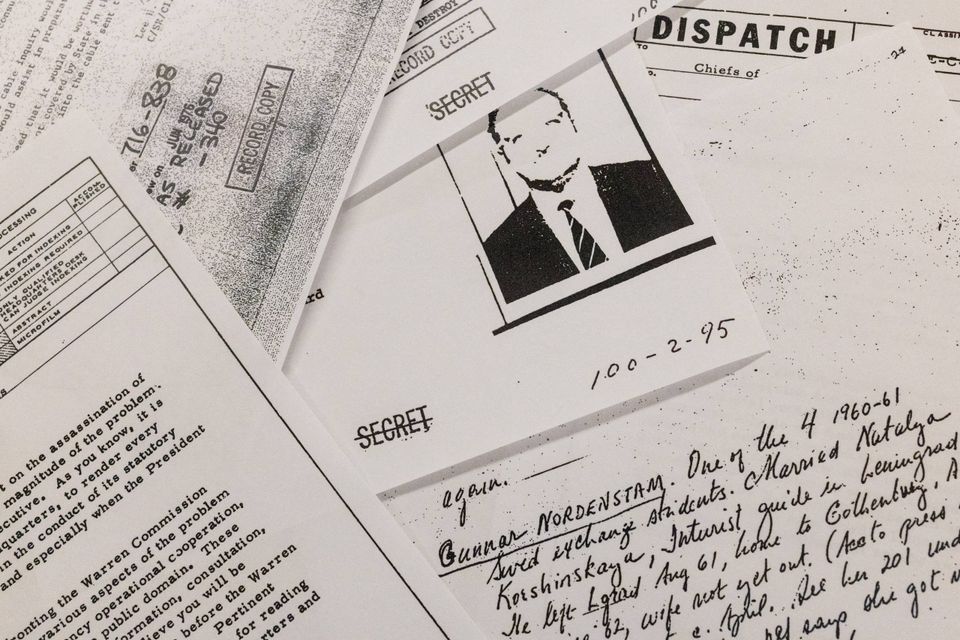 cable inquiry would
would assist in preparat
ed that it would be worth
ot covered by State in
into the cable sent t
Lee
C/SR/CI
or 716-838
ew on JUN 1976
AS RELEASED
# - 340
RECORD COPY
DESTROY
RECORD COPY
SECRET
100
DISPATCH
TO
CLASSI
Chiefs of
24
OCESSING
ACTION
ACCOM-
PLISHED
KED FOR INDEXING
INDEXING REQUIRED
ONLY QUALIFIED
HEADQUARTERS DESK
CAN JUDGE INDEXING
ABSTRACT
MICROFILM
rd
100-2-95
SECRET
t on the assassination of
magnitude of the problem.
ecutive. As you know, it is
quarters, to render every
in the conduct of its statutory
and especially when the President
onting the Warren Commission
various aspects of the problem
ency operational cooperation,
public domain. These
formation, consultation,
lieve you will be
before the Warren
Pertinent
for reading
rters and
again.
Gunnar NORDENSTAM. One of the 4 1960-61
Swed exchange students. Married Natalya
Korshinskaya, Intourist guide in Leningrad
He left Lgrad Aug 61, home to Gothenburg,
62, wife not yet out. (Acc to press
c. April. See her 201 und
says she got